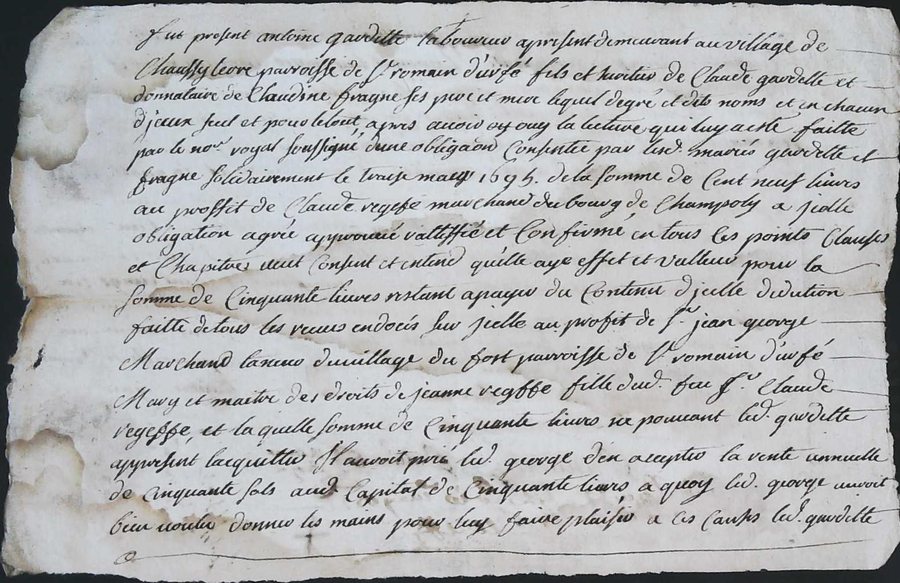 fut present antoine gardette laboureur apresent demeurant au village de
Chaussyterre parroisse de St romain d'urfé fils et heritier de Claude gardette et
donnataire de Claudine fragne ses pere et mere lequel degré et dits noms et en chacun
d'jceux seul et pour le tout apres avoir ouy la lecture qui luy a esté faitte
par le nore royal soussigné d'une obligaon Consentie par lesd. mariés gardette et
fragne solidairement le traise mars 1695. de la somme de Cent neuf livres
au proffit de Claude regeffe marchand du bourg de Champoly a jcelle
obligation agréé approuvé rattiffié et Confirmé en tous ses points Clauses
et Chapitres veut Consent et entend quelle aye effet et valleur pour la
somme de Cinquante livres restant a payer du Contenu d'jcelle dedution
faitte de tous les receus endocés sur jcelle au profit de Sr. jean george
Marchand tanneur du village du fort parroisse de St romain d'urfé
Mary et maitre des droits de jeanne regeffe fille dud. feu Sr. Claude
regeffe, et la quelle somme de Cinquante livres ne pouvant led. gardette
appresent lacquitter Jl auroit prié led. george d'en accepter la vente annuelle
de cinquante sols aud. Capital de Cinquante livres a quoy led. george auroit
bien voulu donner les mains pour luy faire plaisir a ces Causes led. gardette